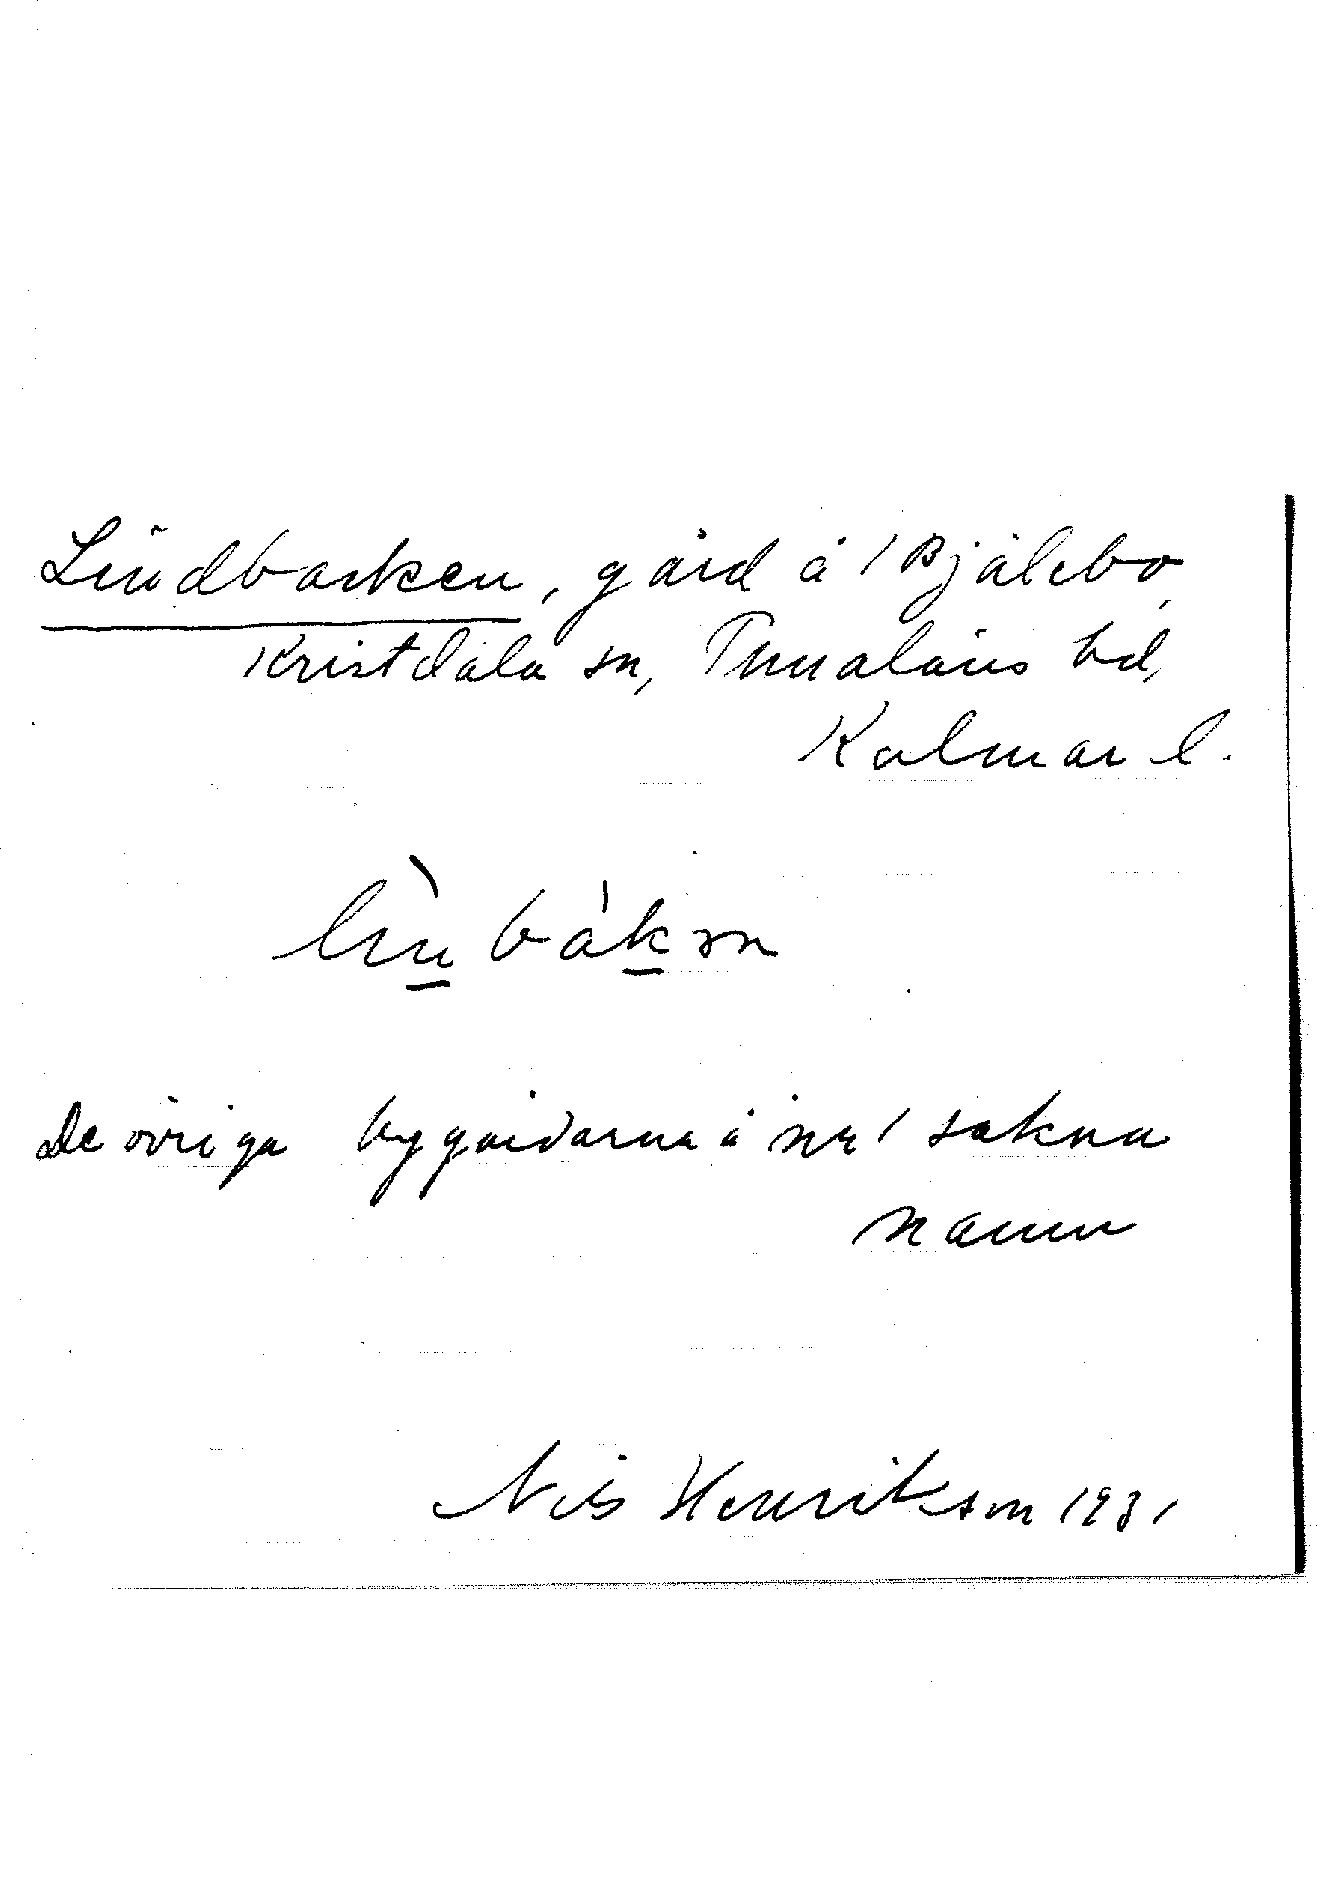 Lindbacken, gård å 1 Bjälebo,
Kristdala sn, Tunaläns hd,
Kalmar l.
lìnbákən
De övriga bygårdarna å nr 1 sakna
namn
Nils Henrikson 1931